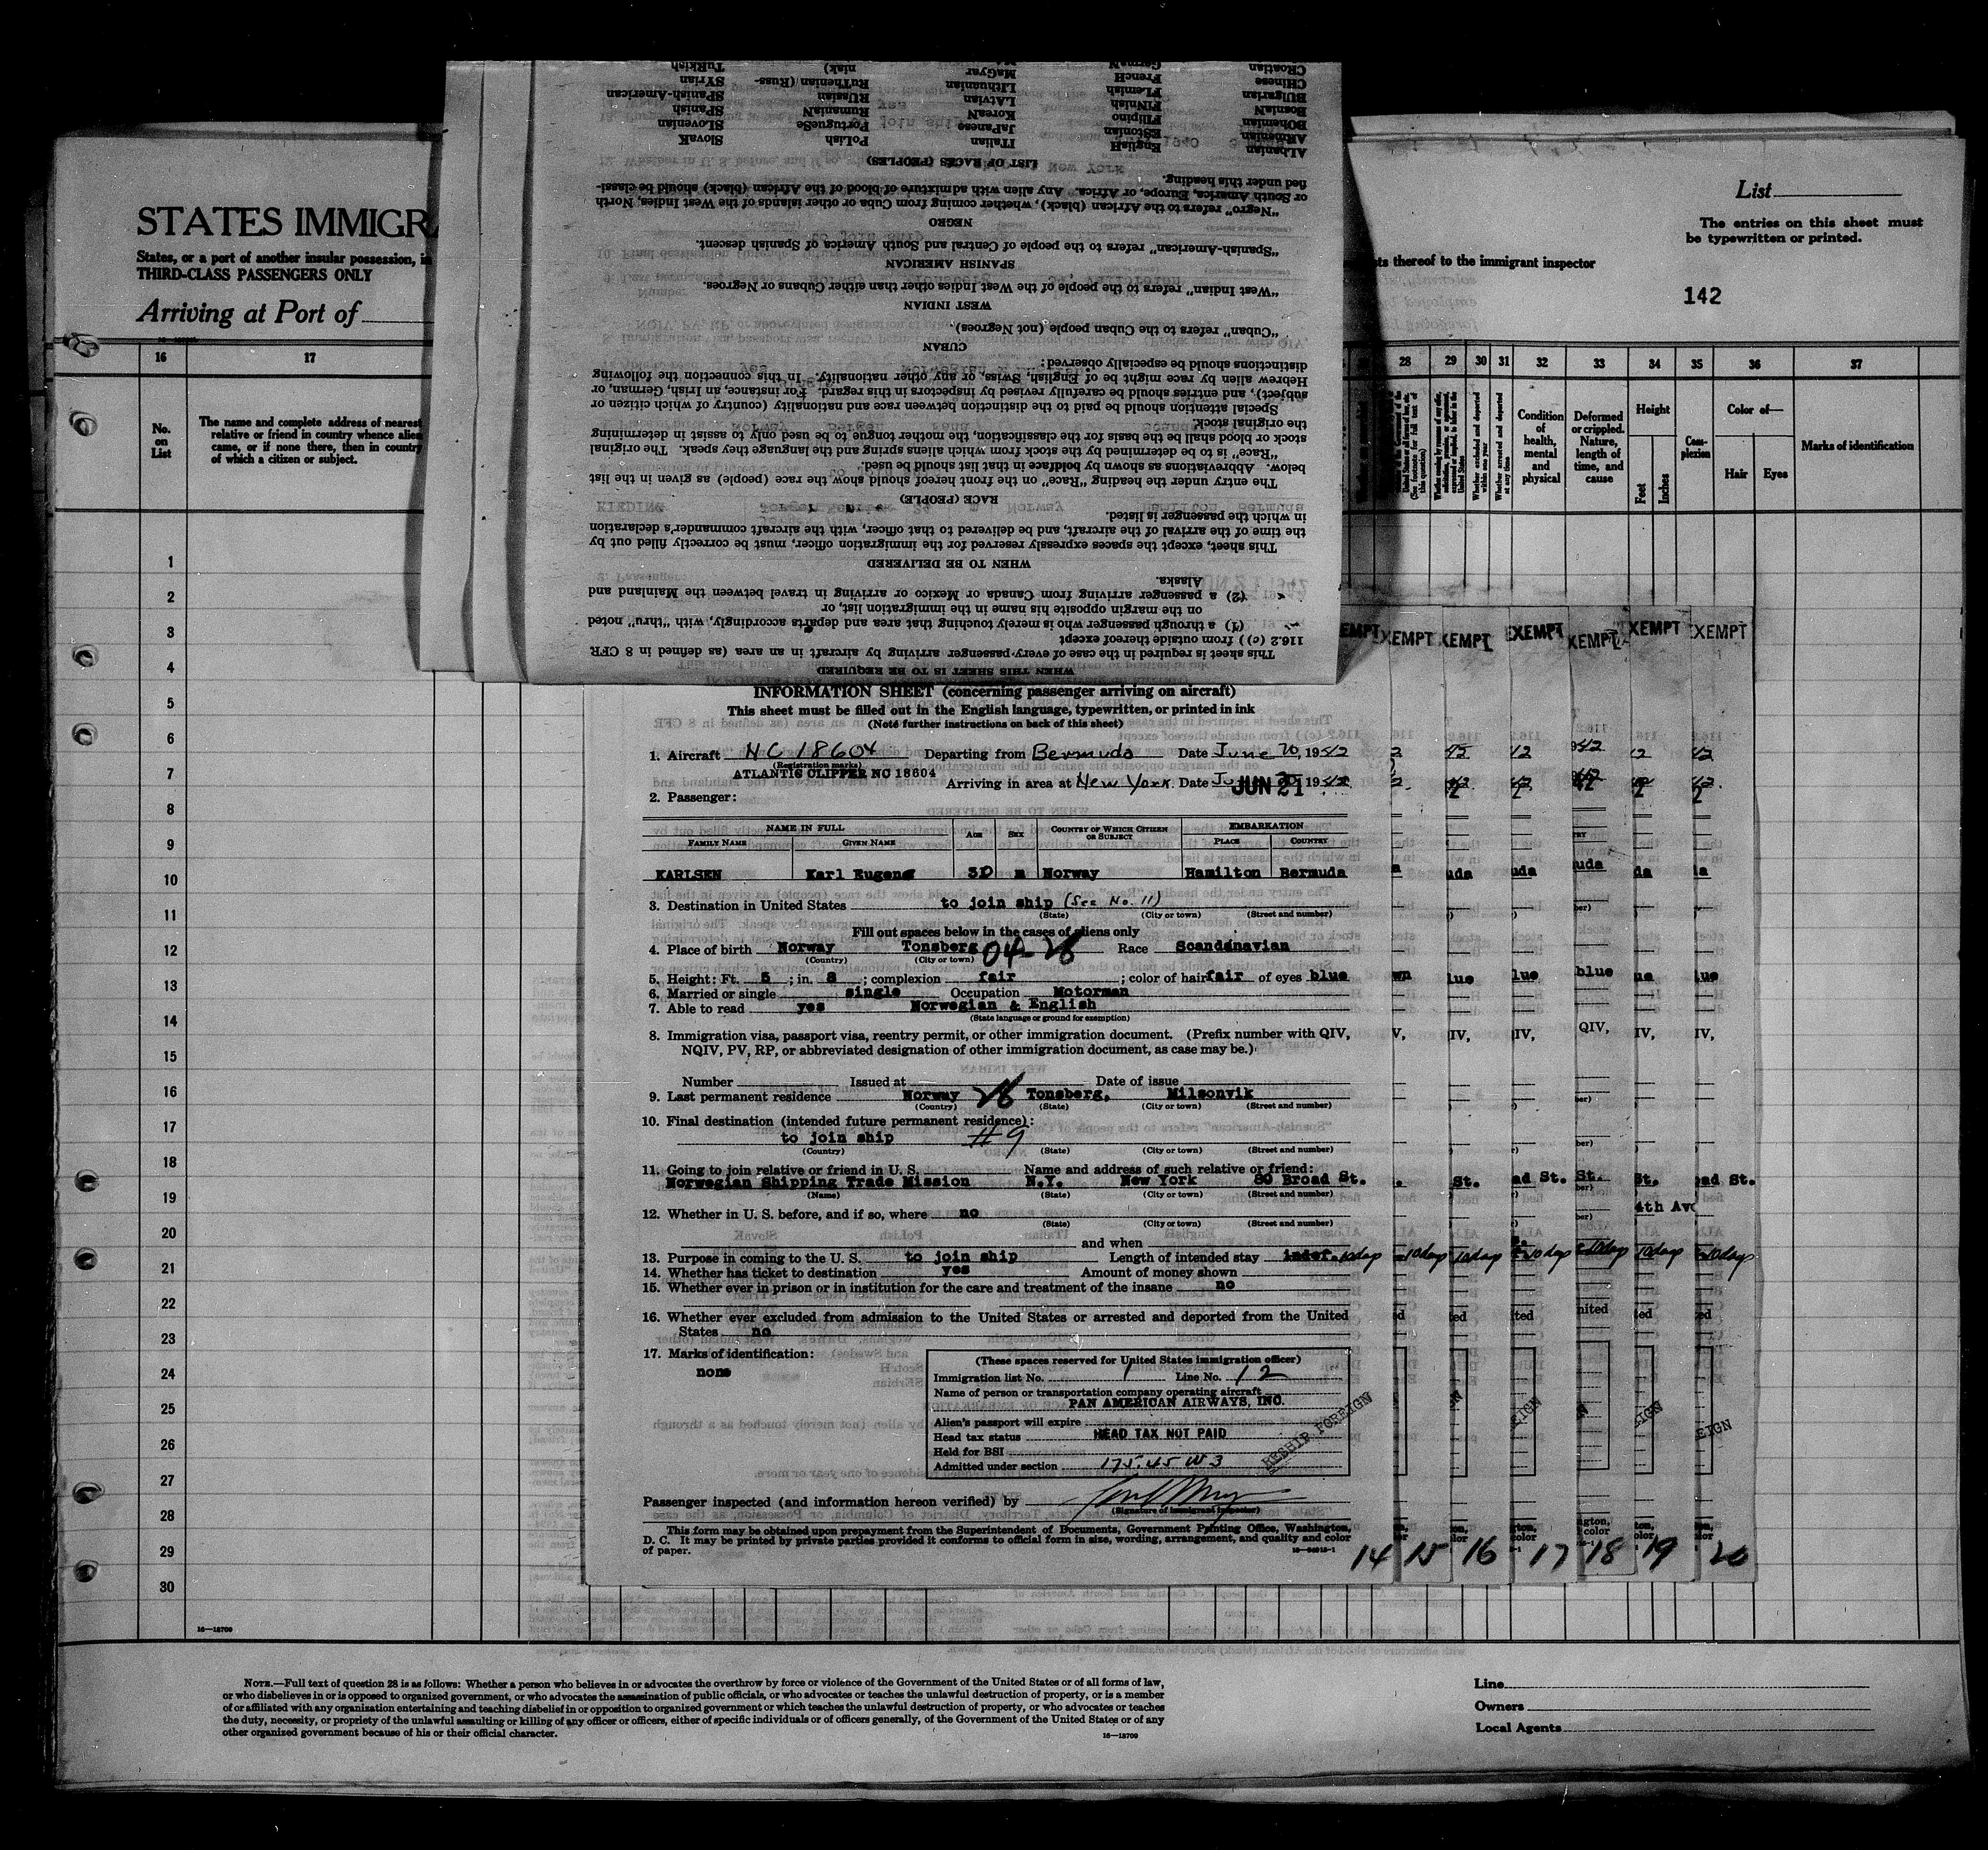 TuRkish niak) MaGyar GermaN CRoatian
SYrian RuThenian (Russ- LIthuanian FrencH CHinese
SPanish-American RUssian LAtvian FLemish BUlgarian
SPanish RumaniaN KoreaN FINnish BosniaN
SLOvenian PortugueSe JaPanese FIlipino BOhemian
SlovaK PoLish ITalian EStonian ARmenian
EngliSH ALbanian
LIST OF RACES (PEOPLES)
"Negro" refers to the African (black), whether coming from Cuba or other islands of the West Indies, North
or South America, Europe, or Africa. Any alien with admixture of blood of the African (black) should be classi-
fied under this heading.
NEGRO
"Spanish-American" refers to the people of Central and South America of Spanish descent.
SPANISH AMERICAN
"West Indian" refers to the people of the West Indies other than either Cubans or Negroes.
WEST INDIAN
"Cuban" refers to the Cuban people (not Negroes).
CUBAN
Special attention should be paid to the distinction between race and nationality (country of which citizen or
subject), and entries should be carefully revised by inspectors in this regard. For instance, an Irish, German, or
Hebrew alien by race might be of English, Swiss, or any other nationality. In this connection the following
distinctions should be especially observed:
"Race" is to be determined by the stock from which aliens spring and the language they speak. The original
stock or blood shall be the basis for the classification, the mother tongue to be used only to assist in determining
the original stock.
The entry under the heading "Race" on the front hereof should show the race (people) as given in the list
below. Abbreviations as shown by boldface in that list should be used.
RACE (PEOPLE)
This sheet, except the spaces expressly reserved for the immigration officer, must be correctly filled out by
the time of the arrival of the aircraft, and be delivered to that officer, with the aircraft commander's declaration
in which the passenger is listed.
WHEN TO BE DELIVERED
(2) a passenger arriving from Canada or Mexico or arriving in travel between the Mainland and
Alaska.
(1) a through passenger who is merely touching that area and departs accordingly, with "thru" noted
on the margin opposite his name in the immigration list, or
This sheet is required in the case of every passenger arriving by aircraft in an area (as defined in 8 CFR
116.2 (c)) from outside thereof except
WHEN THIS SHEET IS TO BE REQUIRED
STATES IMMIGRA
States, or a port of another insular possession, in
THIRD-CLASS PASSENGERS ONLY
Arriving at Port of
List
The entries on this sheet must
be typewritten or printed.
ts thereof to the immigrant inspector
142
16 17 28 29 30 31 32 33 34 35 36 37
No. on List
The name and complete address of nearest
relative or friend in country whence alien
came, or if none there, then in country
of which a citizen or subject.
Whether excluded and deported within one year
Whether arrested and deported at any time
Condition of health, mental and physical
Deformed or crippled. Nature, length of time, and cause
Height
Feet Inches
Com-plexion
Color of—
Hair Eyes
Marks of identification
1
2
3
4
5
6
7
8
9
10
11
12
13
14
15
16
17
18
19
20
21
22
23
24
25
26
27
28
29
30
16—18709
EMPT XEMPT XEMPT EXEMPT EXEMPT EXEMPT EXEMPT
INFORMATION SHEET (concerning passenger arriving on aircraft)
This sheet must be filled out in the English language, typewritten, or printed in ink
(Note further instructions on back of this sheet)
1. Aircraft NC 18604 Departing from Bermuda Date June 20, 1942
(Registration marks)
ATLANTIS CLIPPER NC 18604
Arriving in area at New York. Date JUN 21 1942
2. Passenger:
NAME IN FULL AGE SEX COUNTRY OF WHICH CITIZEN OR SUBJECT EMBARKATION
FAMILY NAME GIVEN NAME PLACE COUNTRY
KARLSEN Karl Eugene 30 m Norway Hamilton Bermuda
3. Destination in United States to join ship (See No. 11)
(State) (City or town) (Street and number)
Fill out spaces below in the cases of aliens only
4. Place of birth Norway Tonsberg 04-28 Race Scandinavian
(Country) (City or town)
5. Height: Ft. 5; in. 8; complexion fair; color of hair fair of eyes blue
6. Married or single single Occupation Motorman
7. Able to read yes Norwegian & English
(State language or ground for exemption)
8. Immigration visa, passport visa, reentry permit, or other immigration document. (Prefix number with QIV,
NQIV, PV, RP, or abbreviated designation of other immigration document, as case may be.)
Number Issued at Date of issue
9. Last permanent residence Norway 28 Tonsberg, Milsonvik
(Country) (State) (City or town) (Street and number)
10. Final destination (intended future permanent residence):
to join ship #9
(Country) (State) (City or town) (Street and number)
11. Going to join relative or friend in U. S. Name and address of such relative or friend:
Norwegian Shipping Trade Mission N.Y. New York 80 Broad St.
(Name) (State) (City or town) (Street and number)
12. Whether in U. S. before, and if so, where no
(State) (City or town) (Street and number)
and when
13. Purpose in coming to the U. S. to join ship Length of intended stay indef. 10 days
14. Whether has ticket to destination yes Amount of money shown
15. Whether ever in prison or in institution for the care and treatment of the insane no
16. Whether ever excluded from admission to the United States or arrested and deported from the United
States no
17. Marks of identification:
none
(These spaces reserved for United States immigration officer)
Immigration list No. 1 Line No. 12
Name of person or transportation company operating aircraft
PAN AMERICAN AIRWAYS, INC.
Alien's passport will expire
Head tax status HEAD TAX NOT PAID
Held for BSI
Admitted under section 175.45 W 3
RESHIP FOREIGN
Passenger inspected (and information hereon verified) by
(Signature of immigrant inspector)
This form may be obtained upon prepayment from the Superintendent of Documents, Government Printing Office, Washington,
D. C. It may be printed by private parties provided it conforms to official form in size, wording, arrangement, and quality and color
of paper.
14 15 16 17 18 19 20
NOTE.—Full text of question 28 is as follows: Whether a person who believes in or advocates the overthrow by force or violence of the Government of the United States or of all forms of law,
or who disbelieves in or is opposed to organized government, or who advocates the assassination of public officials, or who advocates or teaches the unlawful destruction of property, or is a member
of or affiliated with any organization entertaining and teaching disbelief in or opposition to organized government or which teaches the unlawful destruction of property, or who advocates or teaches
the duty, necessity, or propriety of the unlawful assaulting or killing of any officer or officers, either of specific individuals or of officers generally, of the Government of the United States or of any
other organized government because of his or their official character.
16—18709
Line
Owners
Local Agents